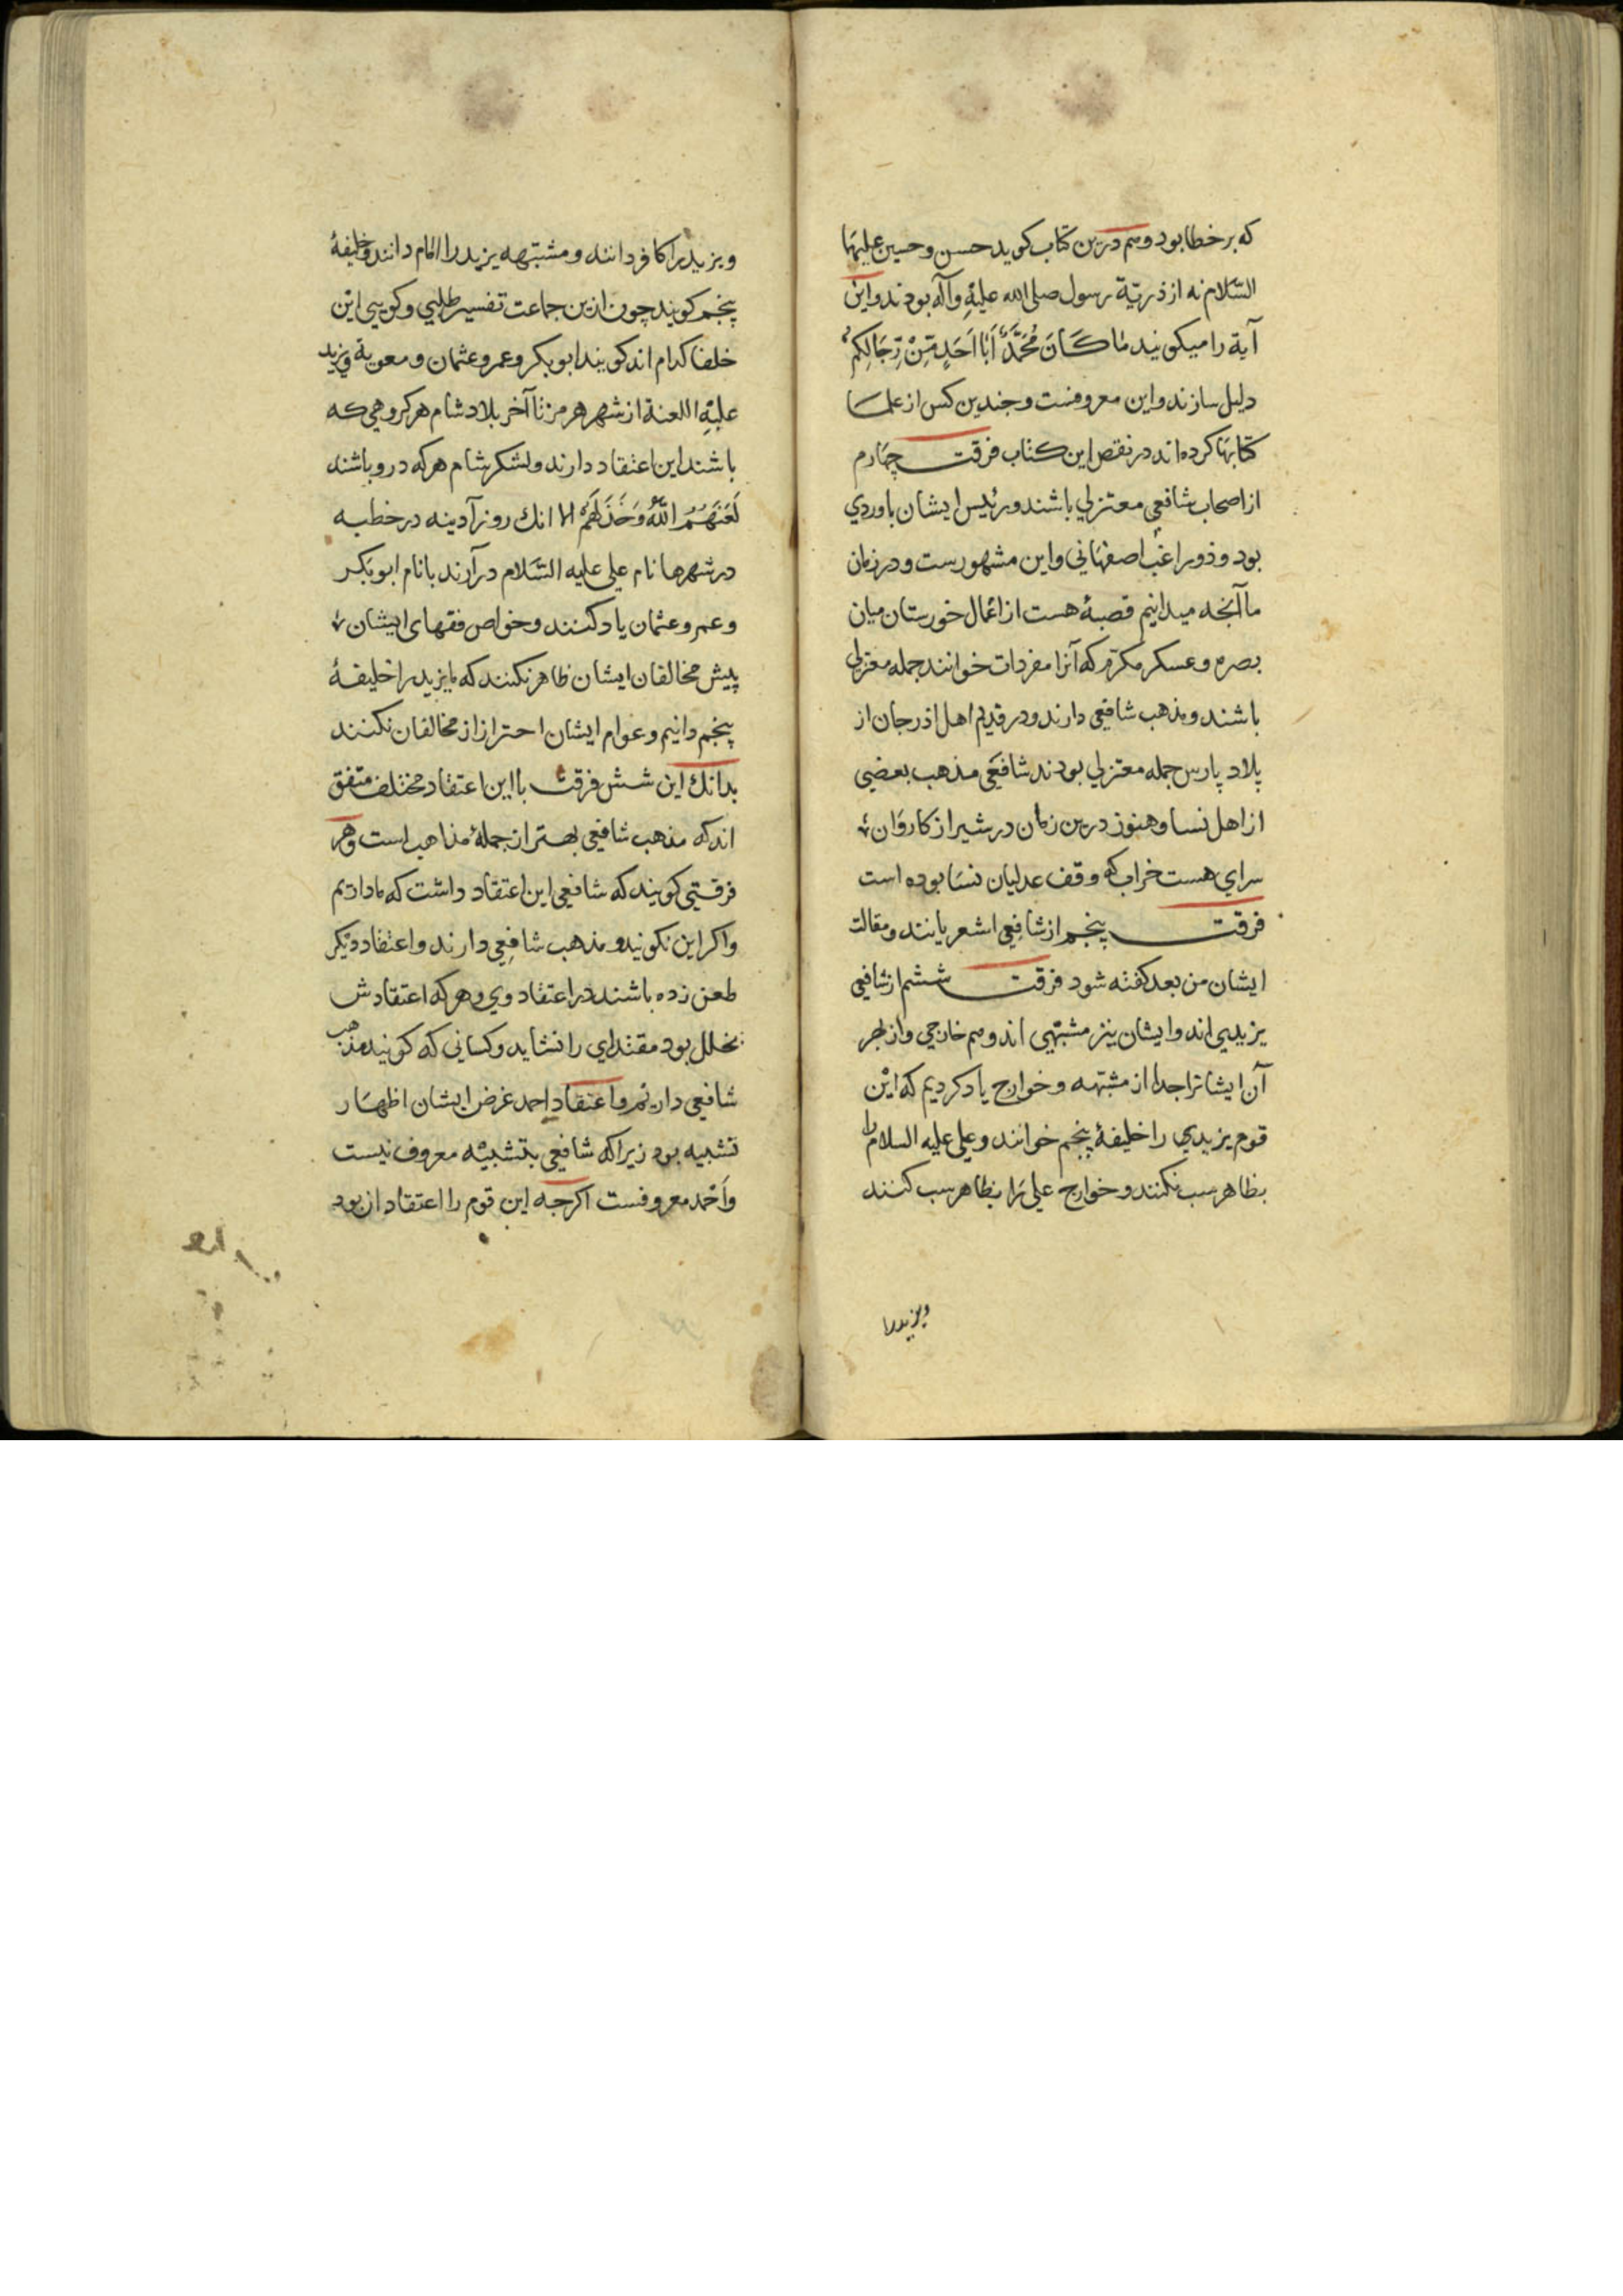 که بر خطا بود و هم درین کتاب کوید حسن و حسین علیهما
السّلام نه از ذریّة رسول صلی الله علیهِ وآله بودند و این
آیة را میکویند مٰا کَانَ مُحَمَّدٌ اَبَا اَحَدٍ مِّنْ رِّجَالِکُمْ
دلیل سازند و این معروفست و چندین کس از علما
کتابها کرده اند در نقض این کتاب فرقت چهارم
از اصحاب شافعی معتزلی باشند و رئیس ایشان باوردی
بود و ذو راغب اصفهانی و این مشهورست و در زمان
ما آنچه میدانیم قصبهٔ هست از اعمال خورستان میان
بصره و عسکر مکرّم که آنرا مفردات خوانند جمله معتزلی
باشند و مذهب شافعی دارند و در قدیم اهل اذرجان از
بلاد پارس جمله معتزلی بودند شافعی مذهب بعضی
از اهل نسا و هنوز درین زمان در شیراز کاروان
سرای هست خراب که وقف عدلیان نسا بوده است
فرقت پنجم از شافِعِی اشعریانند و مقالت
ایشان من بعد کفته شود فرقت ششم از شافعی
یزیدیی اند و ایشان نیز مشبّهی اند و هم خارجی و از بهر
آن ایشانرا جدا از مشبّهه و خوارج یاد کردیم که این
قوم یزیدی را خلیفهٔ پنجم خوانند و علی علیه السلام را
بظاهر سب نکنند و خوارج علی را بظاهر سب کنند
ویزیدرا
و یزید را کافر دانند و مشبّهه یزید را امام دانند و خلیفهٔ
پنجم کویند چون ازین جماعت تفسیر طلبی و کویی این
خلفا کدام اند کویند ابو بکر و عمر و عثمان و معویة و یزید
علیهِ اللعنة از شهر هرمز تا آخر بلاد شام هر کروهی که
باشند این اعتقاد دارند و لشکر شام هر که درو باشند
لَعَنَهُمُ اللهُ وَخَذَلَهُمْ الا انك روز آدینه در خطبه
در شهرها نام علی علیه السّلام در آرند با نام ابو بکر
و عمر و عثمان یاد کنند و خواص فقهای ایشان
پیش مخالفان ایشان ظاهر نکنند که ما یزید را خلیفهٔ
پنجم دانیم و عوام ایشان احتراز از مخالفان نکنند
بدانك این شش فرقت با این اعتقاد مختلف متفق
اند که مذهب شافعی بهتر از جملهٔ مذاهب است و هر
فرقتی کویند که شافعی این اعتقاد داشت که ما داریم
و اکر این نکویند و مذهب شافِعِی دارند و اعتقاد دیکر
طعن زده باشند در اعتقاد وی و هر که اعتقادش
بخلل بود مقتدای را نشاید و کسانی که کویند مذهب
شافعی داریم و اعتقاد احمد غرض ایشان اظهار
تشبیه بود زیرا که شافعی بتشبیه معروف نیست
و اَحْمد معروفست اکرچه این قوم را اعتقاد ان بود